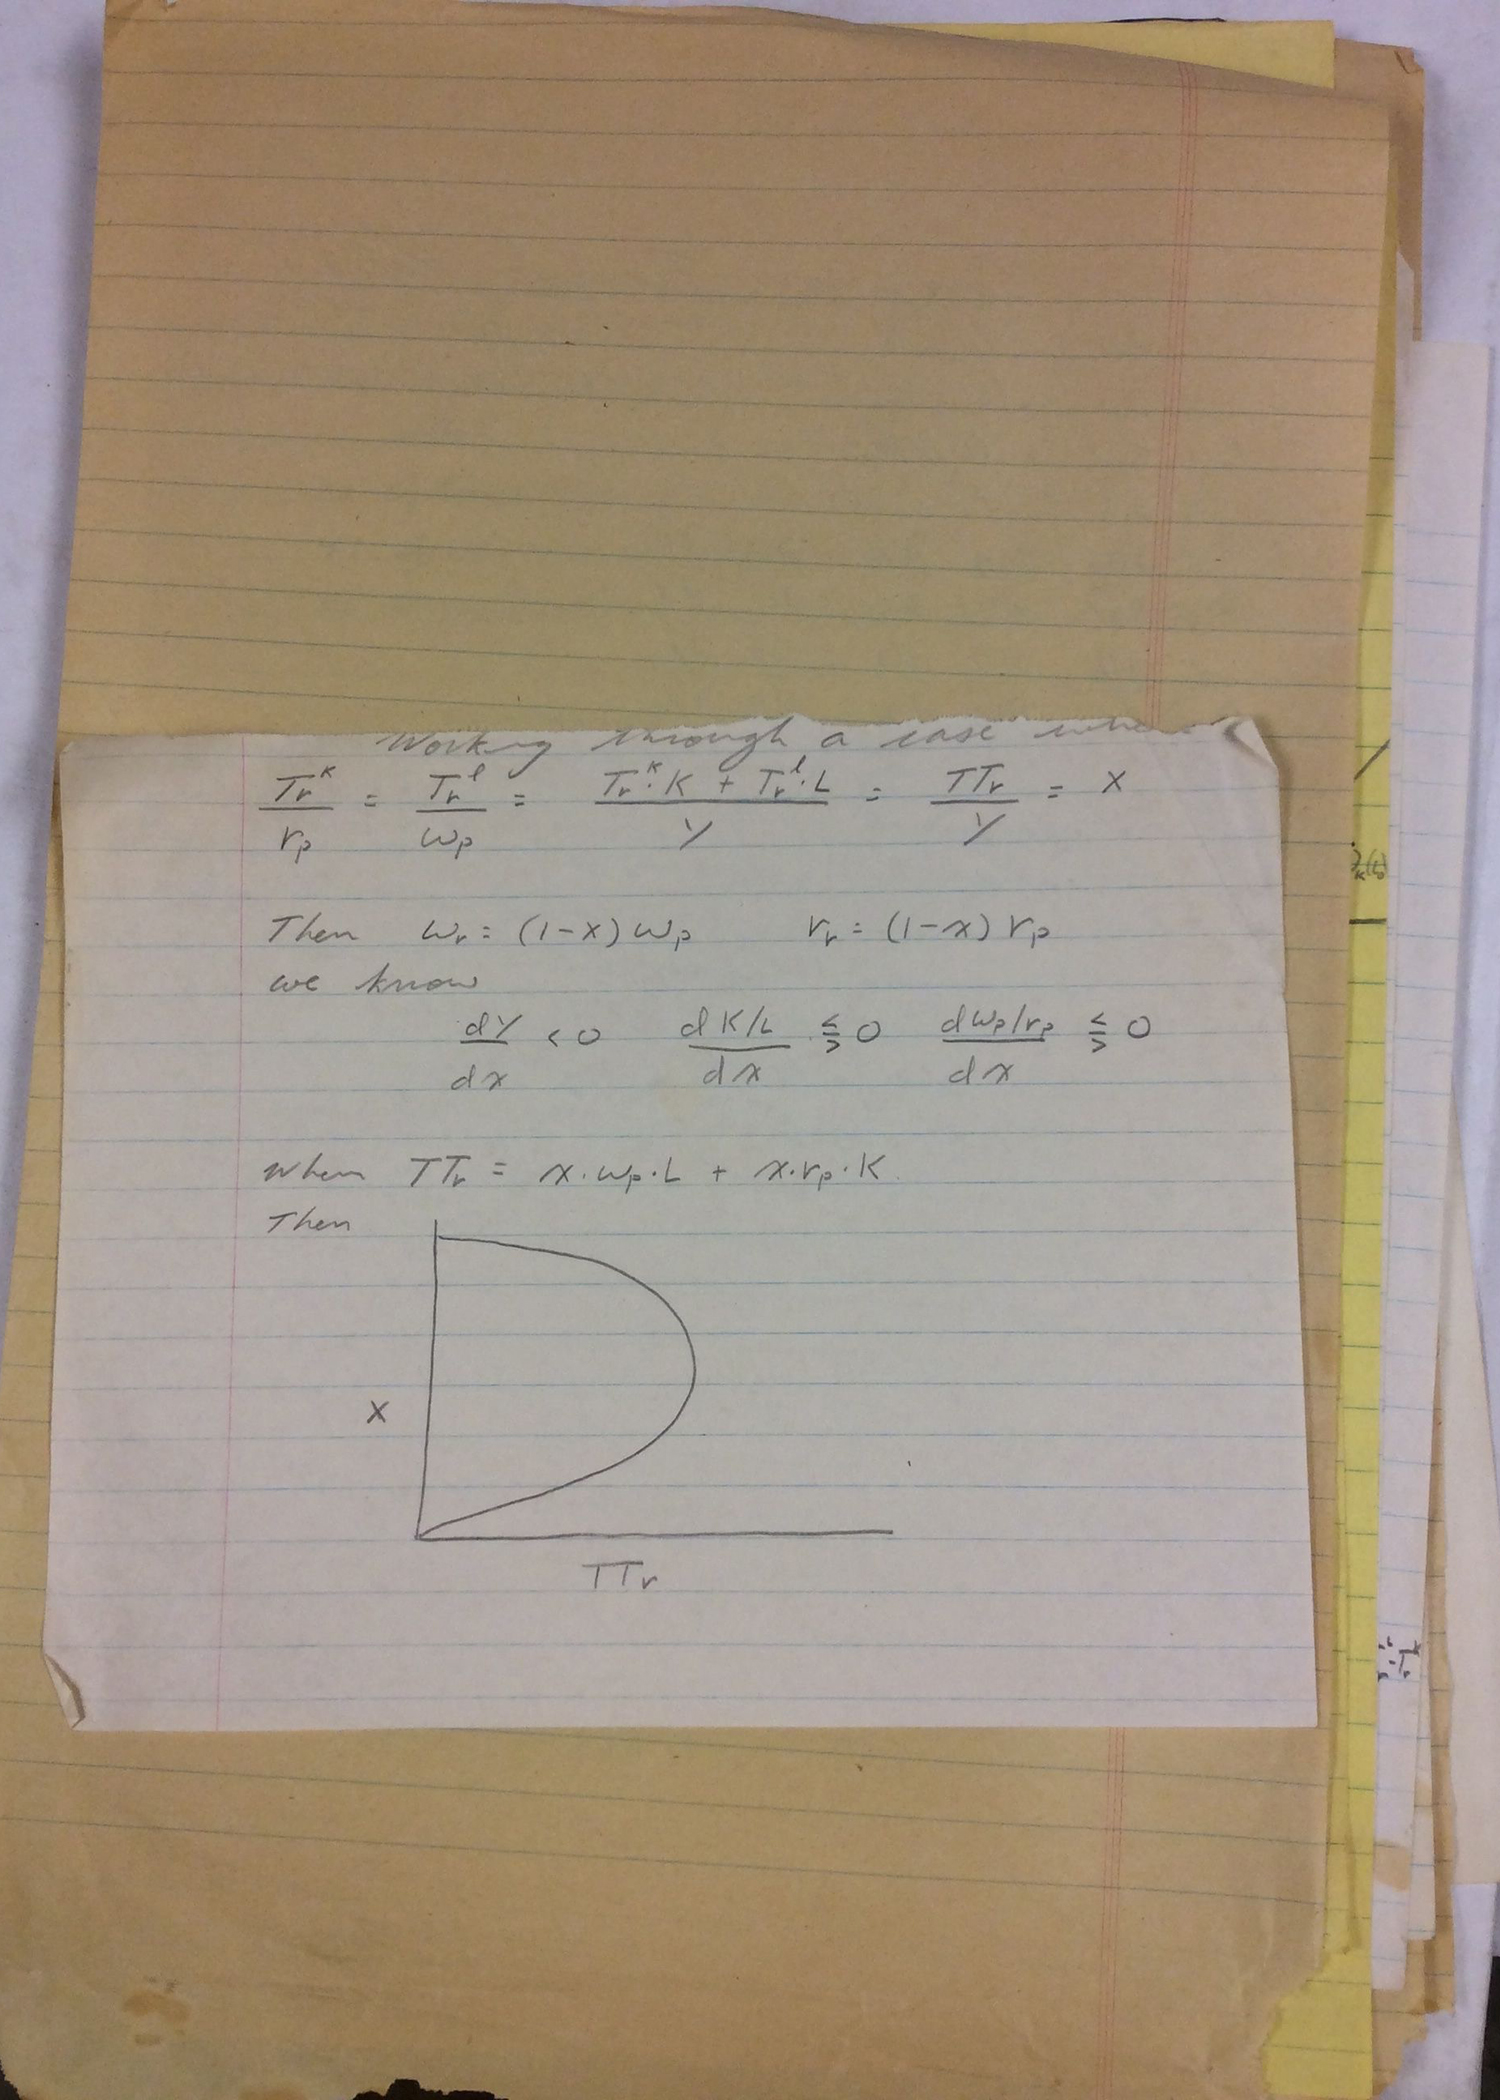 Working through a case where
Tr^k / rp = Tr^l / wp = Tr^k · K + Tr^l · L / Y = TTr / Y = X
Then wr = (1-x) wp rr = (1-x) rp
we know
dY / dx < 0 d K/L / dx ≶ 0 d wp/rp / dx ≶ 0
When TTr = x·wp·L + x·rp·K
Then
X
TTr